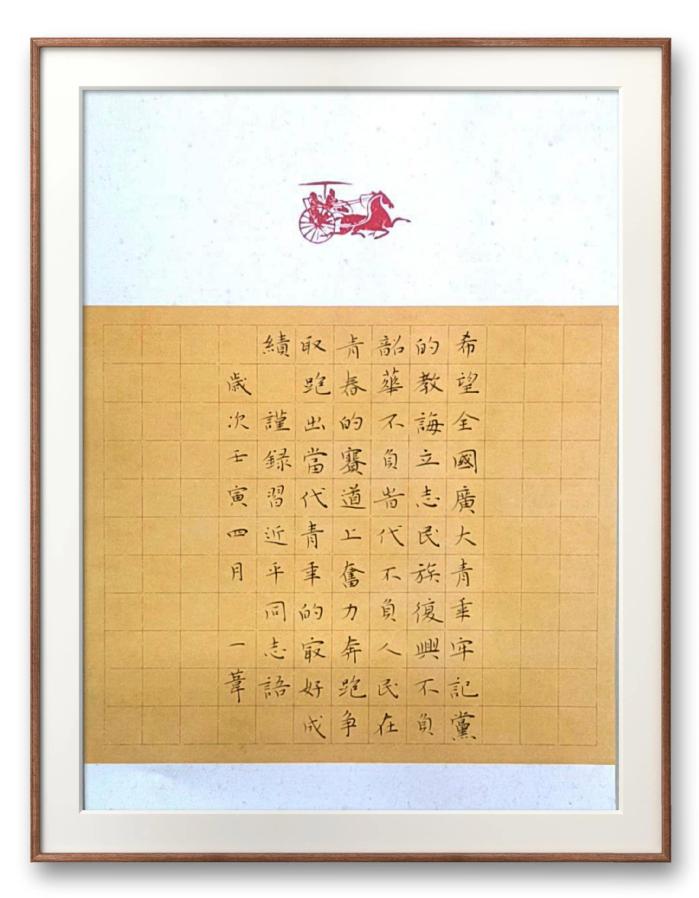 希望全國廣大青年牢記黨
的教誨立志民族復興不負
韶華不負時代不負人民在
青春的賽道上奮力奔跑争
取跑出當代青年的最好成
績 謹録習近平同志語
歲次壬寅四月 一葦